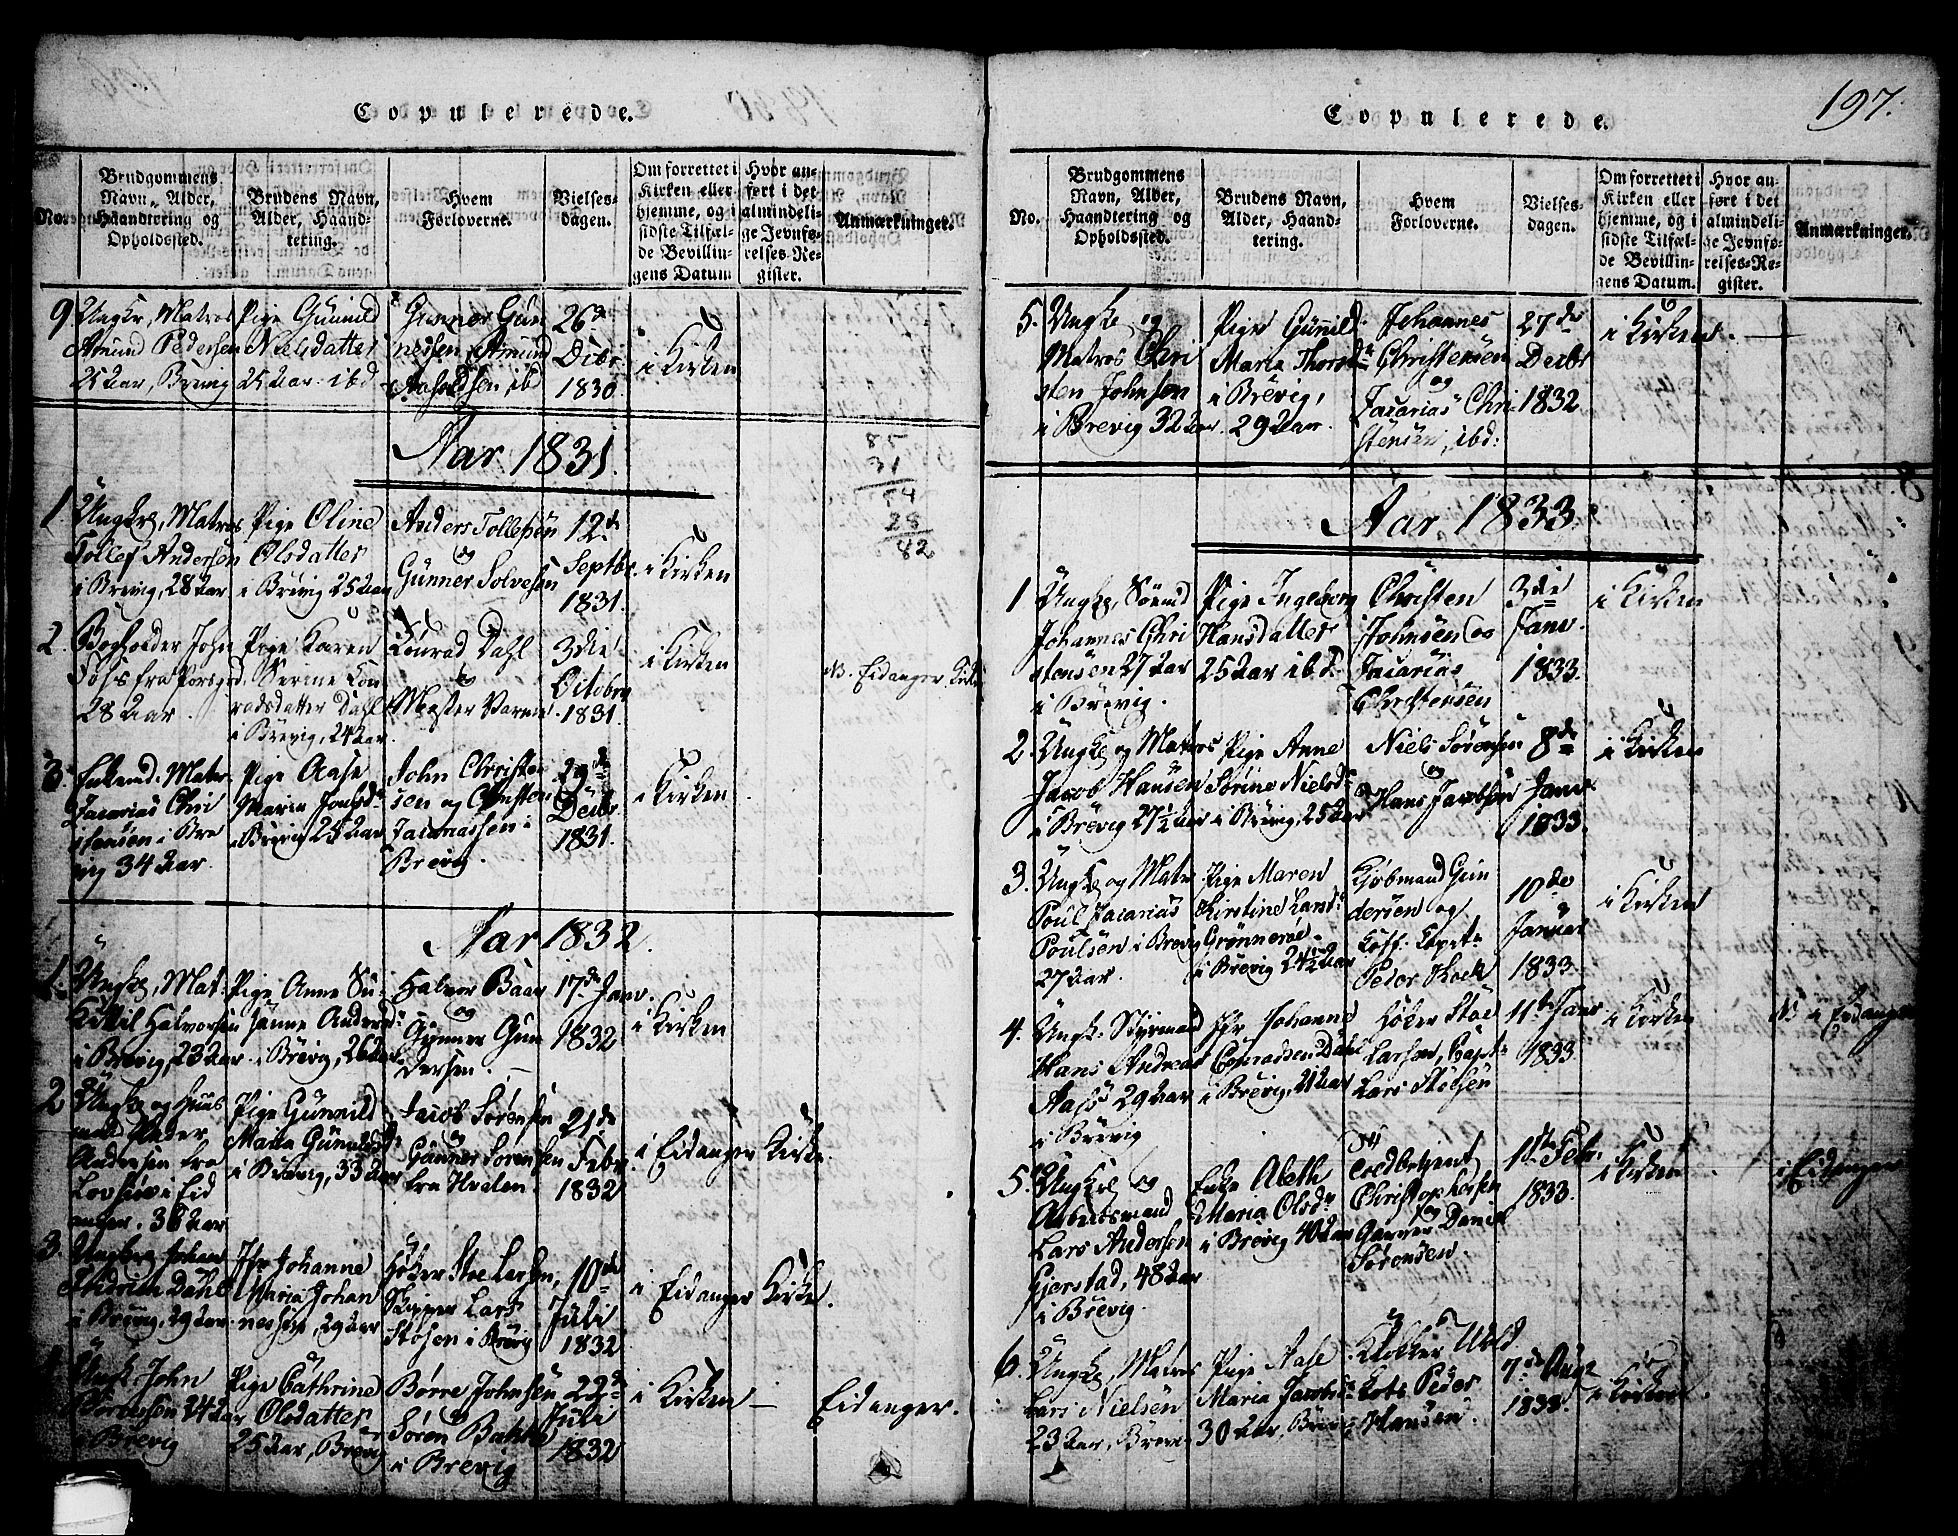 Copulerede.
No.
Brudgommens
Navn, Alder,
Haandtering og
Opholdssted.
Brudens Navn,
Alder, Haand-
tering.
Hvem
Forloverne.
Vielses-
dagen.
Om forrettet i
Kirken eller
hjemme, og i
sidste Tilfæl-
de Bevillin-
gens Datum
Hvor an-
ført i det
almindeli-
ge Jevnfø-
relses-Re-
gister.
Anmærkninger.
9
Ungkr, Matros
Amund Pedersen
25 Aar, Brevig
Pige Gunnild
Nielsdatter
25 Aar ibd
Gunner Gun
nessen Amund
ibd
26de
Decbr
1830
i Kirken
Aar 1831.
85
31
54
28
82
1.
Ungkr, Matros
Tollef Andersen
i Brevig, 28 Aar
Pige Oline
Olsdatter
i Brevig 25 Aar
Anders Tollefsen
og
Gunner Solvesen
12de
Septbr
1831.
i Kirken
2.
Bogholder John
fra Porsgrd
28 Aar.
Pige Karen
Serine Con
radsdatter Dahl
i Brevig, 24 Aar
Konrad Dahl
og
3die
Octobr
1831.
i Kirken
N. Eidanger Kirke
3.
Enkemd. Matr.
Zacarias Chri
stensen i Bre
vig 34 Aar
Pige Aase
Maria
i Brevig 25 Aar
John Christen
sen og Christen
Zacariassen i
Brevig.
29de
Decbr
1831.
i Kirken
Aar 1832.
1.
Ungkr, Mat:
Kittil Halvorsen
i Brevig, 23 Aar
Pige Anne Su
sanne Andersd:
i Brevig, 26 Aar
Halvor Baar
og
Gunner Gun
dersen.
17de Janv.
1832
i Kirken
2
Ungkr og Huus
mand Peder
Andersen fra
i Eid
anger, 36 Aar
Pige Gunnild
Maria
i Brevig, 33 Aar
Jacob Sørensen
og
Gunner Sørensen
fra
21de
Febr.
1832
i Eidanger Kirke.
3.
Ungkr Johan
Andrian Dahl
i Brevig, 29 Aar
Jfr Johanne
Maria Johan
nessen, 29 Aar
Høker Stoe Larsen,
Skipper Lars
Stosen i Brevig
10de
Juli
1832
i Eidanger Kirke.
Ungk. John
24 Aar
i Brevig
Pige Cathrine
Olsdatter
25 Aar, Brevig
Børre Johnsen
Søren Bakke
i Brevig
29de
Juli
1832
i Kirken
Eidanger.
Copulerede.
197.
No.
Brudgommens
Navn, Alder,
Haandtering og
Opholdssted.
Brudens Navn,
Alder, Haand-
tering.
Hvem
Forloverne.
Vielses-
dagen.
Om forrettet i
Kirken eller
hjemme, og i
sidste Tilfæl-
de Bevillin-
gens Datum.
Hvor an-
ført i det
almindeli-
ge Jevnfø-
relses-Re-
gister.
Anmærkninger.
5.
Ungk og
Matros Chri
sten Johnsen
i Brevig 32 Aar
Pige Gunild
Maria Thorsd
i Brevig,
29 Aar.
Johannes
Christensen
og
Zacarias Chri
stensen, ibd:
27de
Decbr
1832
i Kirken.
Aar 1833.
1
Ungkr, Sømd
Johannes Chri
stensen 27 Aar
i Brevig.
Pige Ingeborg
Hansdatter
25 Aar ibd.
Christen
Johnsen og
Zacarias
Christensen
3die
Janv.
1833.
i Kirken
2.
Ungkr og Matros
Jacob Hansen
i Brevig 27½ Aar
Pige Anne
Sørine Nielsd
i Brevig, 25 Aar
Niels Sørensen
og
Hans Jacobsen
8de
Janv.
1833.
i Kirken
3.
Ungkr og Matr
Poul Zacarias
Poulsen i Brevig
27 Aar.
Pige Maren
Kirstine Larsd:
Grønneroe
i Brevig 24½ Aar
Kjøbmand Gun
dersen og
Koff. Capt:
Peder Koch
10de
Januar
1833.
i Kirken
4.
Ungk: Styrmand
Hans Andreas
29 Aar
i Brevig
Jfr Johanne
Conradsen Dahl
i Brevig, 21 Aar
Høker Stoe
Larsen, Capt:
Lars Stosen
11te Janr
1833.
i Kirken
N i Eidanger
5.
Ungkr og
Arbeidsmand
Lars Andersen
Gjerstad, 48 Aar
i Brevig.
Enke Aleth
Maria Olsd:
i Brevig 40 Aar
Christophersen
og
Garver Daniel
Sørensen.
1ste Febr.
1833.
i Kirken
i Eidanger
6.
Ungkr, Matros
Lars Nielsen
23 Aar, Brevig
Pige Aase
Maria Jacobsd
30 Aar, Brevig
Klokker
Peder
Hansen.
7de Augs
1833.
i Kirken